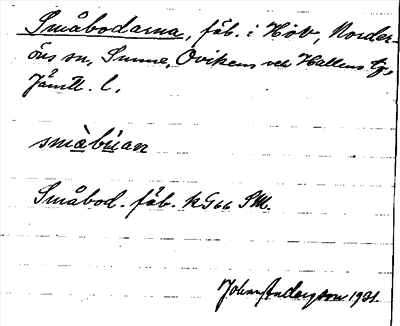 Småbodarna, fäb. i Höv, Norder-
öns sn, Sunne, Ovikens och Hallens tg,
Jämtl. l.
småbúan
Småbod. fäb. k G66 SM.
Johan Anderson 1931.